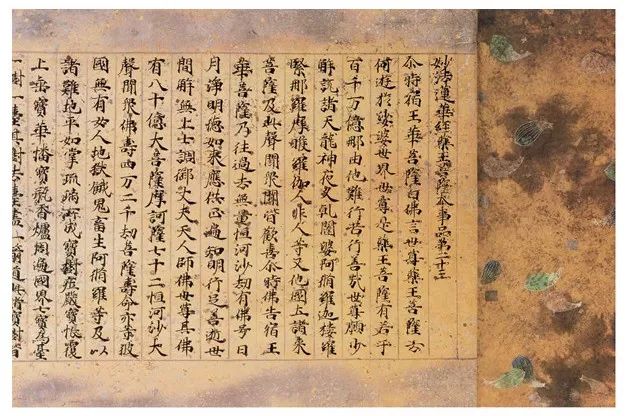 妙法蓮華經藥王菩薩本事品第二十三
尒時宿王華菩薩白佛言世尊藥王菩薩云
何遊於娑婆世界世尊是藥王菩薩有若干
百千万億那由他難行苦行善哉世尊願少
解說諸天龍神夜叉乹闥婆阿脩羅迦樓羅
緊那羅摩睺羅伽人非人等又他國土諸來
菩薩及此聲聞衆聞皆歡喜尒時佛告宿王
華菩薩乃往過去無量恒河沙劫有佛号日
月淨明德如來應供正遍知明行足善逝世
間解無上士調御丈夫天人師佛世尊其佛
有八十億大菩薩摩訶薩七十二恒河沙大
聲聞衆佛壽四万二千劫菩薩壽命亦等彼
國無有女人地獄餓鬼畜生阿脩羅等及以
諸難地平如掌瑠璃所成寶樹庄嚴寶帳覆
上垂寶華幡寶瓶香爐周遍國界七寶為臺
一樹一臺其樹去臺盡一箭道此諸寶樹皆